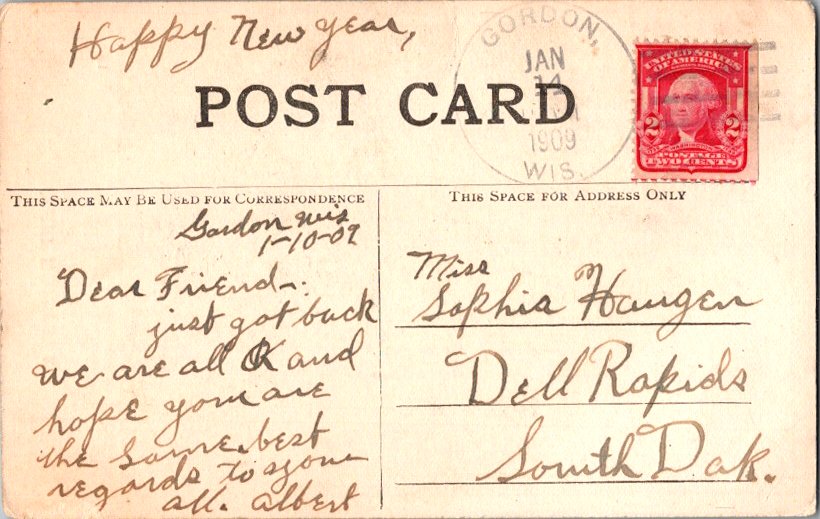 Happy New Year,
POST CARD
GORDON,
JAN
14
1909
WIS.
UNITED STATES
OF AMERICA
2 2
POSTAGE
TWO CENTS
THIS SPACE MAY BE USED FOR CORRESPONDENCE
Gordon Wis
1-10-09
Dear Friend-.
just got back
we are all OK and
hope you are
the same. best
regards to you
all. albert
THIS SPACE FOR ADDRESS ONLY
Miss
Sophia Haugen
Dell Rapids
South Dak.